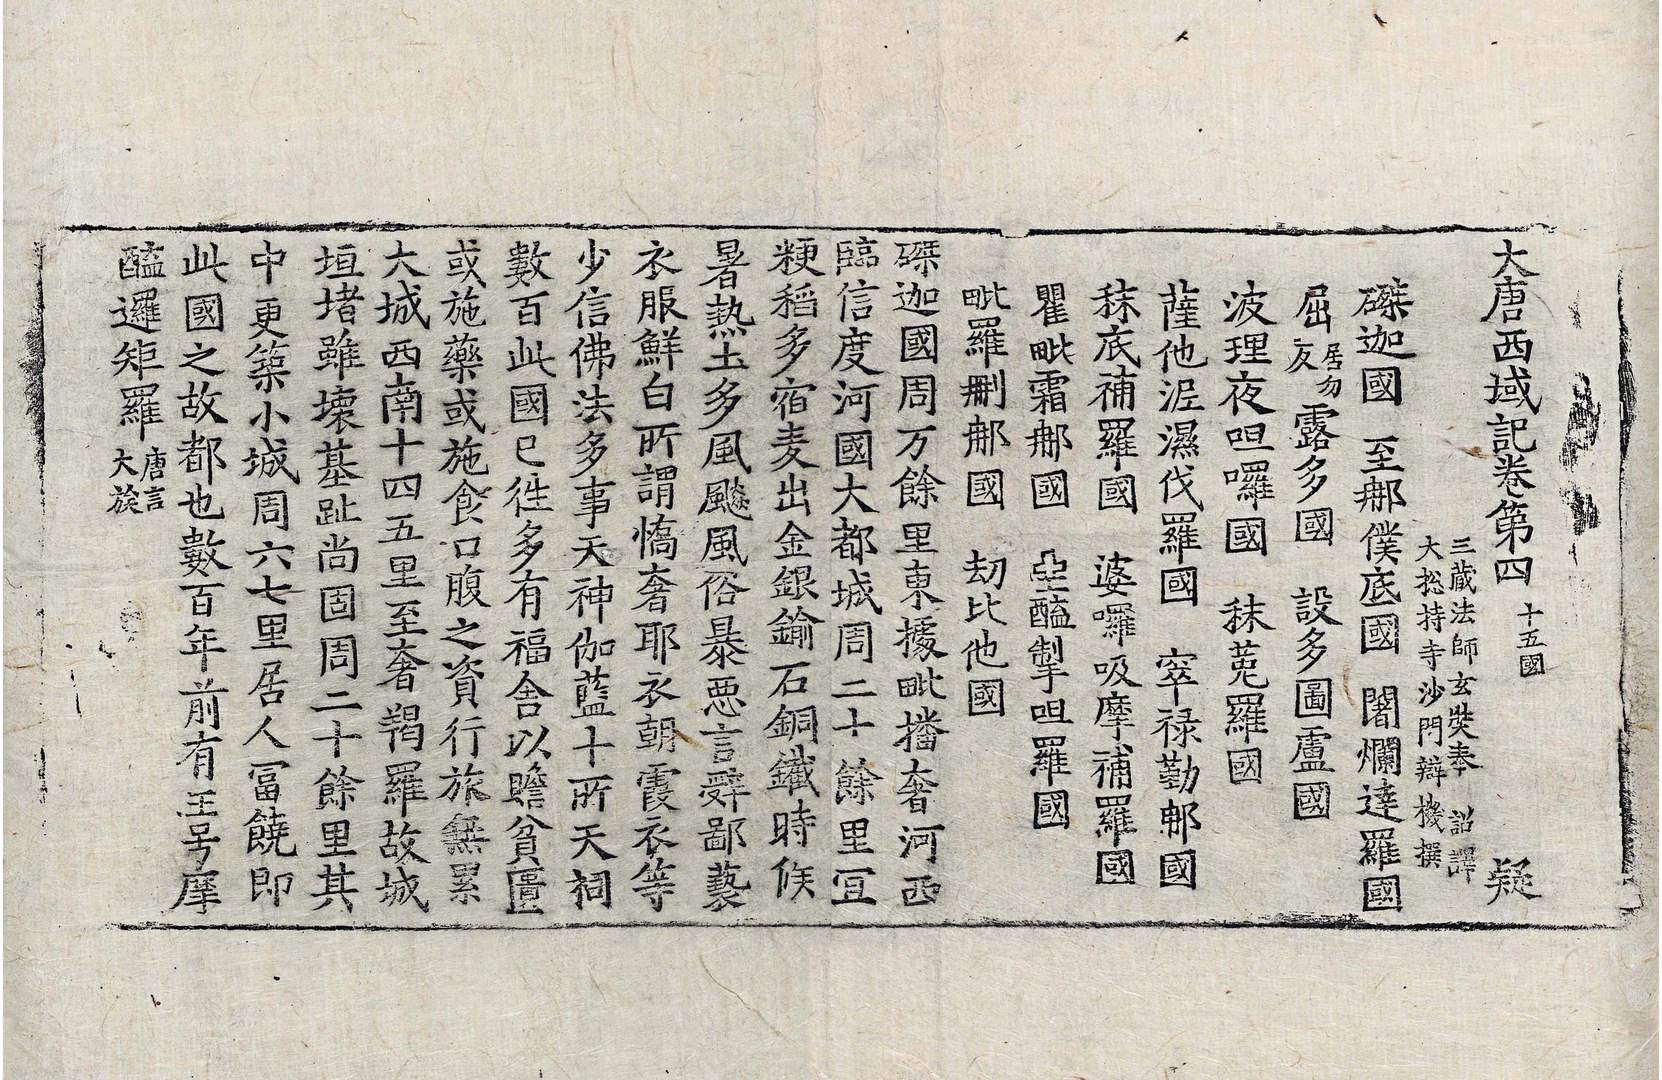 大唐西域記卷第四 十五國 疑
三藏法師玄奘奉 詔譯
大捴持寺沙門辯機撰
磔迦國 至那僕底國 闍爛達羅國
屈居勿反露多國 設多圖盧國
波理夜呾囉國 秣菟羅國
薩他泥濕伐羅國 窣禄勤那國
秣底補羅國 婆囉吸摩補羅國
瞿毗霜那國 堊醯掣呾羅國
毗羅刪那國 劫比他國
磔迦國周万餘里東據毗播奢河西
臨信度河國大都城周二十餘里宜
粳稻多宿麦出金銀鍮石銅鐵時候
暑熱土多風飈風俗暴惡言辭鄙藝
衣服鮮白所謂憍奢耶衣朝霞衣等
少信佛法多事天神伽藍十所天祠
數百此國已徃多有福舍以贍貧匱
或施藥或施食口腹之資行旅無累
大城西南十四五里至奢羯羅故城
垣堵雖壞基趾尚固周二十餘里其
中更築小城周六七里居人冨饒即
此國之故都也數百年前有王号摩
醯邏矩羅唐言大族